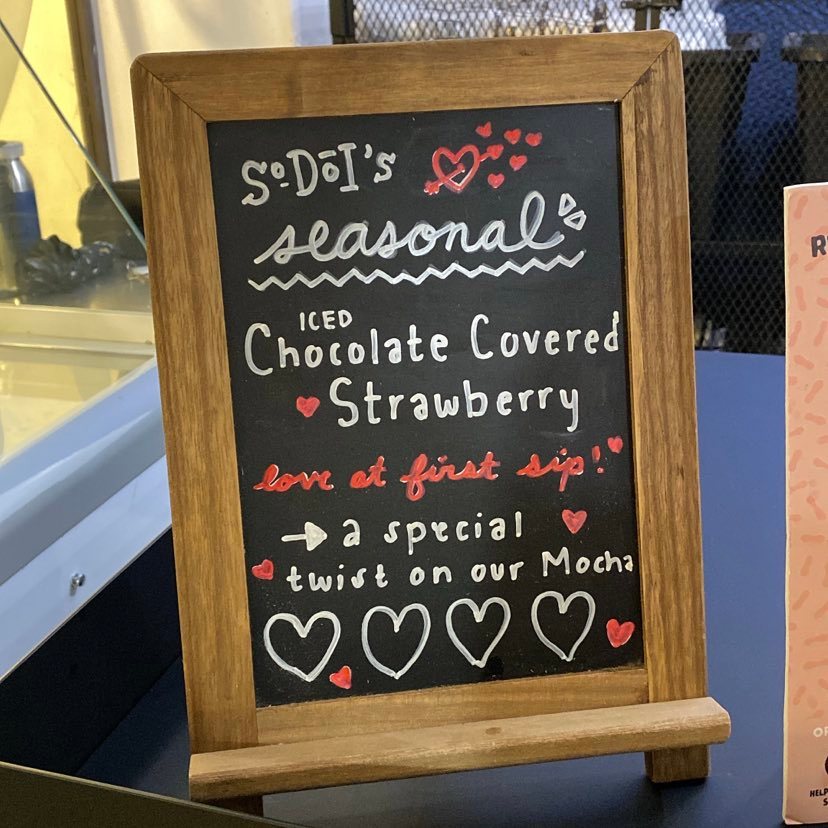 SoDōI's
seasonal
ICED
Chocolate Covered
Strawberry
love at first sip!
→ a special
twist on our Mocha
HELP